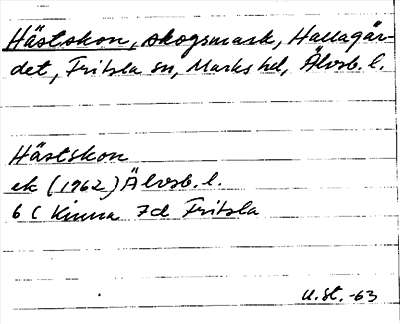 Hästskon, skogsmark, Hallagär-
det, Fritsla sn, Marks hd, Älvsb. l.
Hästskon
ek (1962) Älvsb. l.
6 C Kinna 7d Fritsla
U.St. -63